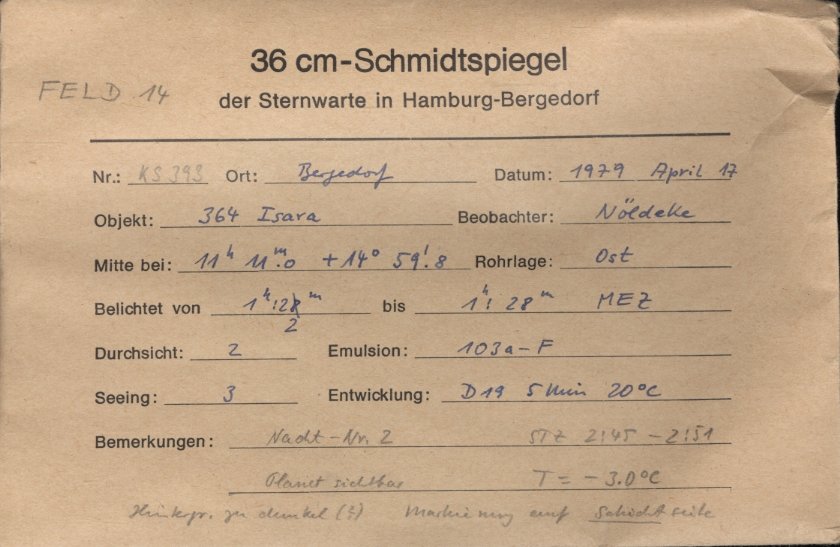 36 cm-Schmidtspiegel
FELD 14
der Sternwarte in Hamburg-Bergedorf
Nr.: KS 393 Ort: Bergedorf Datum: 1979 April 17
Objekt: 364 Isara Beobachter: Nöldeke
Mitte bei: 11ʰ 11ᵐ.0 +14° 59'.8 Rohrlage: Ost
Belichtet von 1ʰ:22ᵐ bis 1ʰ: 28ᵐ MEZ
Durchsicht: 2 Emulsion: 103a-F
Seeing: 3 Entwicklung: D19 5 Min 20°C
Bemerkungen: Nacht-Nr. 2 STZ 2:45 - 2:51
Planet sichtbar T = -3.0°C
Hintergr. zu dunkel (?) Markierung auf Schichtseite